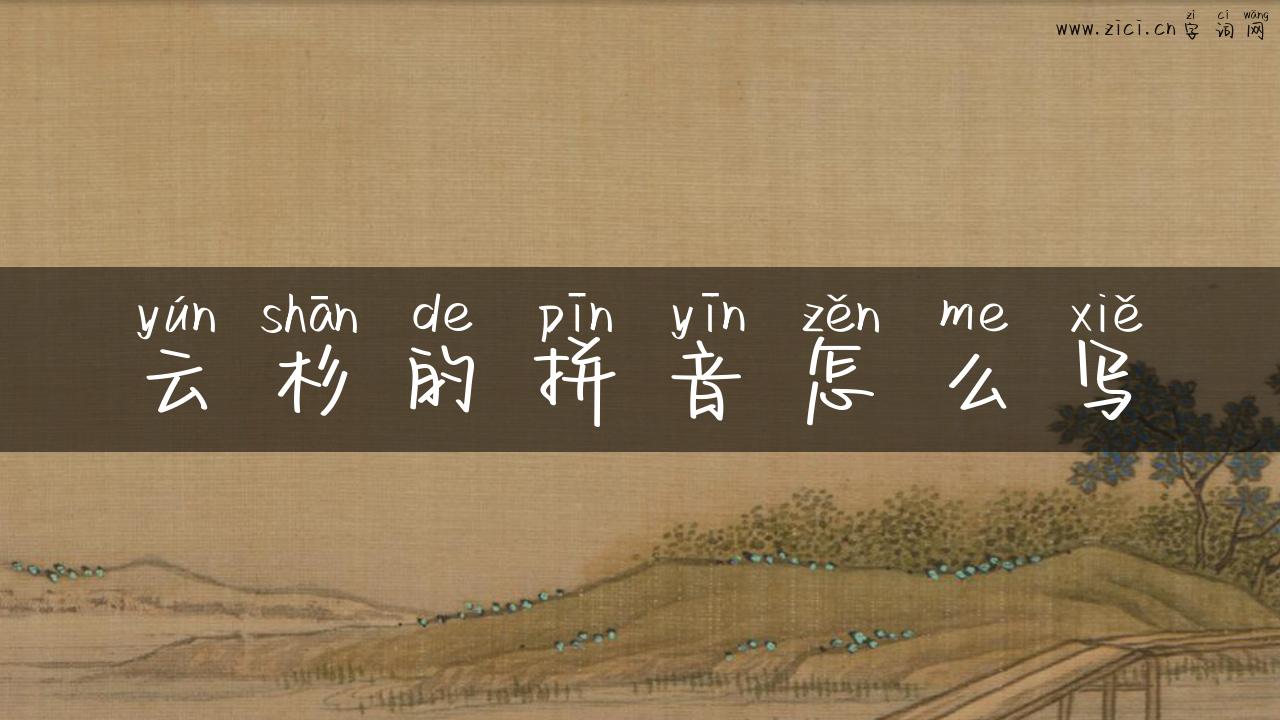 zì cí wǎng
www.zici.cn 字词网
yún shān de pīn yīn zěn me xiě
云杉的拼音怎么写